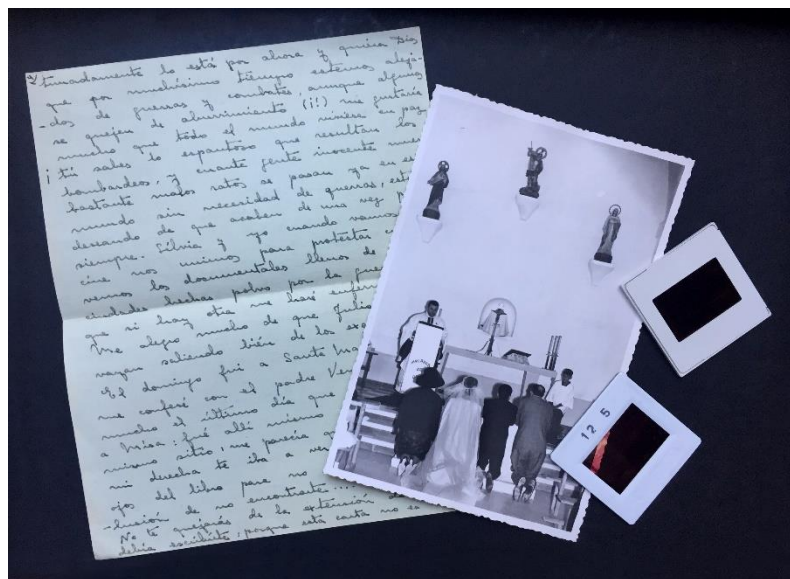 timadamente lo está por ahora y quiera Dios
que por muchísimo tiempo estemos aleja-
-dos de guerras y combates, aunque algunos
se quejen de aburrimiento (¡!) me gustaría
mucho que todo el mundo viviera en paz
¡tú sabes lo espantoso que resultan los
bombardeos, y cuanta gente inocente
bastante malos ratos se pasan ya en es
mundo sin necesidad de guerras, est
deseando de que acaben de una vez p
siempre. Silvia y yo cuando vamos
cine nos unimos para protestar c
vemos los documentales llenos de
ciudades hechas polvo por la gue
que si hay otra me haré enfer
Me alegro mucho de que Julio
vayan saliendo bién de los exa
El domingo fui a Santa Ma
me confesé con el padre Ver
mucho el último día que
a Misa: fué allí mismo
mismo sitio, me parecía
mi derecha te iba a ver
ojos del libro para no
-lusión de no encontrarte....
No te quejarás de la extensión d
debía escribirte, porque esta carta no es
12 5